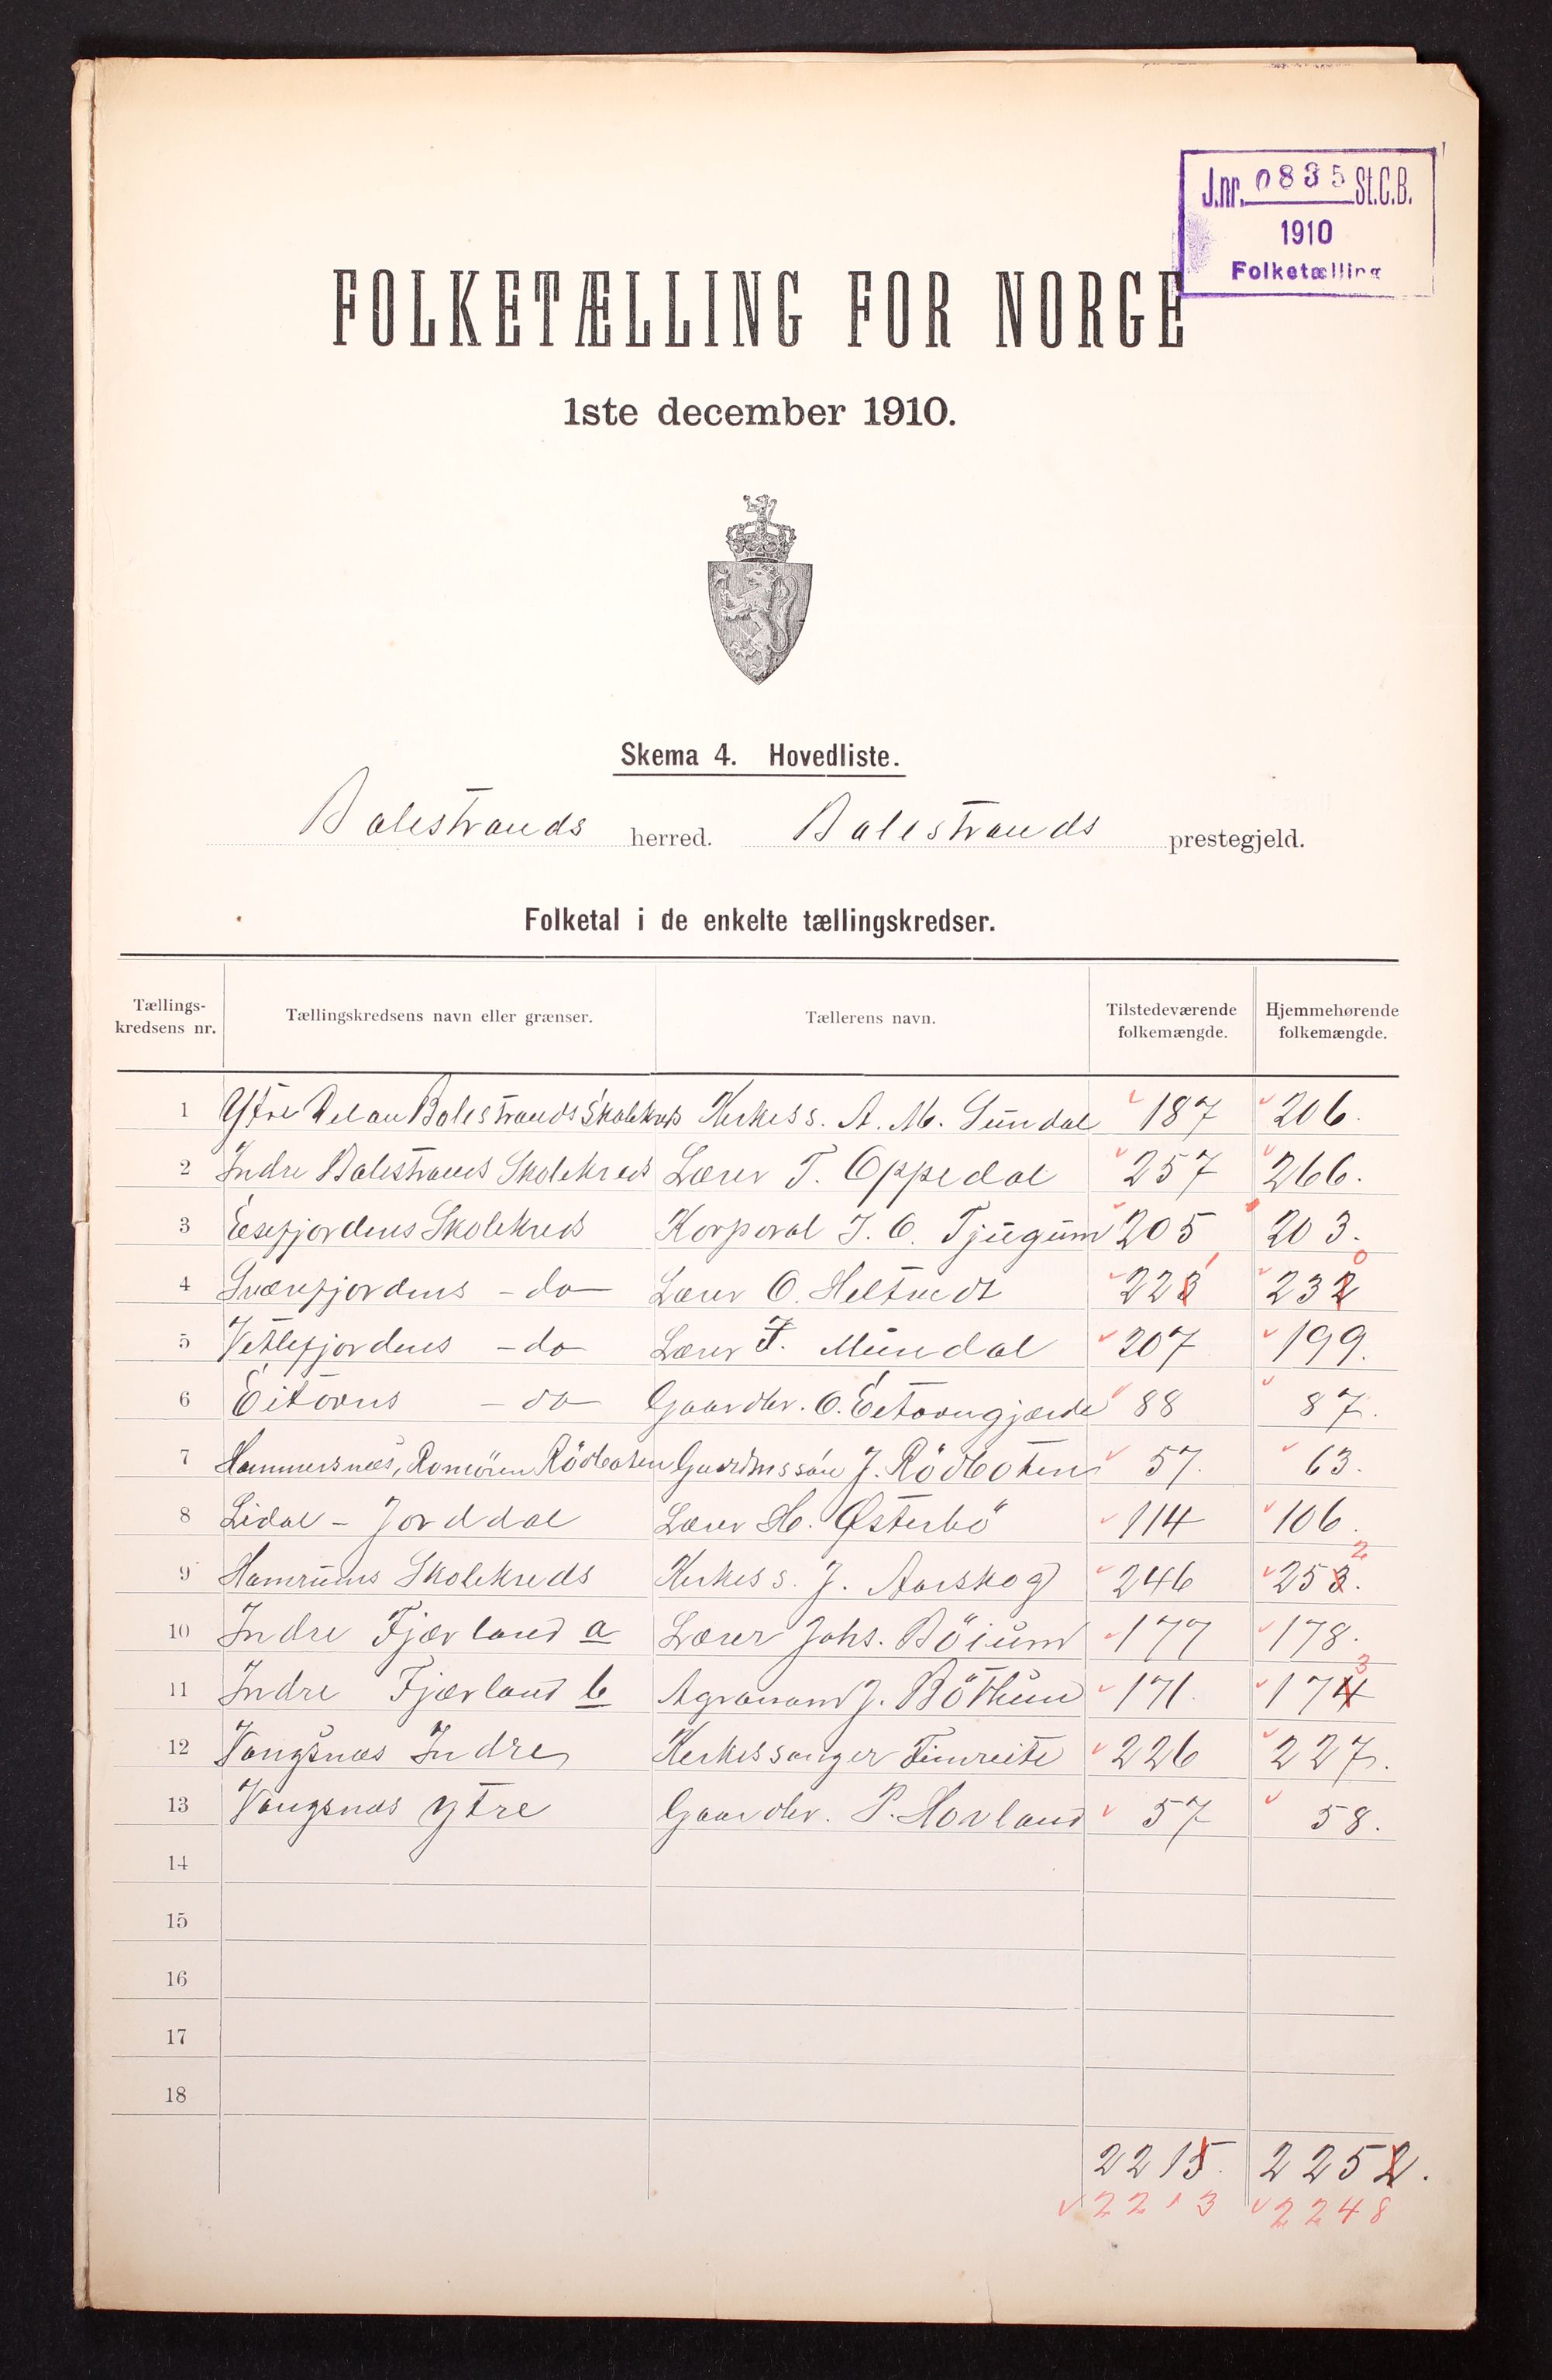 J.nr. 0835 St.C.B.
1910
Folketælling
FOLKETÆLLING FOR NORGE
1ste december 1910.
Skema 4. Hovedliste.
Balestrands herred. Balestrands prestegjeld.
Folketal i de enkelte tællingskredser.
Tællings-kredsens nr. Tællingskredsens navn eller grænser. Tællerens navn. Tilstedeværende folkemængde. Hjemmehørende folkemængde.
1 Ytre Del av Balestrands Skolekreds Kirkess. A. M. Sundal 187 206.
2 Indre Balestrands Skolekreds Lærer T. Oppedal 257 266.
3 Esefjordens Skolekreds Korporal J. O. Tjugum 205 203.
4 Sværefjordens - do Lærer O. Heltvedt 223 1 232 0
5 Vetlefjordens - do Lærer J. Mundal 207 199.
6 Eitorns - do Gaardbr. O. Eitorngjærde 88 87.
7 Hammersnæs, Romören Rödboten Gaardmssön J. Rödboten 57. 63.
8 Lidal - Jorddal Lærer H. Østerbö 114 106.
9 Hamrums Skolekreds Kirkess. J. Aarskog 246 253. 2
10 Indre Fjærland a Lærer Johs. Böium 177 178.
11 Indre Fjærland b Agronom J. Böthun 171. 174 3
12 Vangsnæs Indre Kirkessanger Finreite 226 227.
13 Vangsnæs ytre Gaardbr. P. Hovland 57 58.
14
15
16
17
18
2215. 2252.
2213 2248